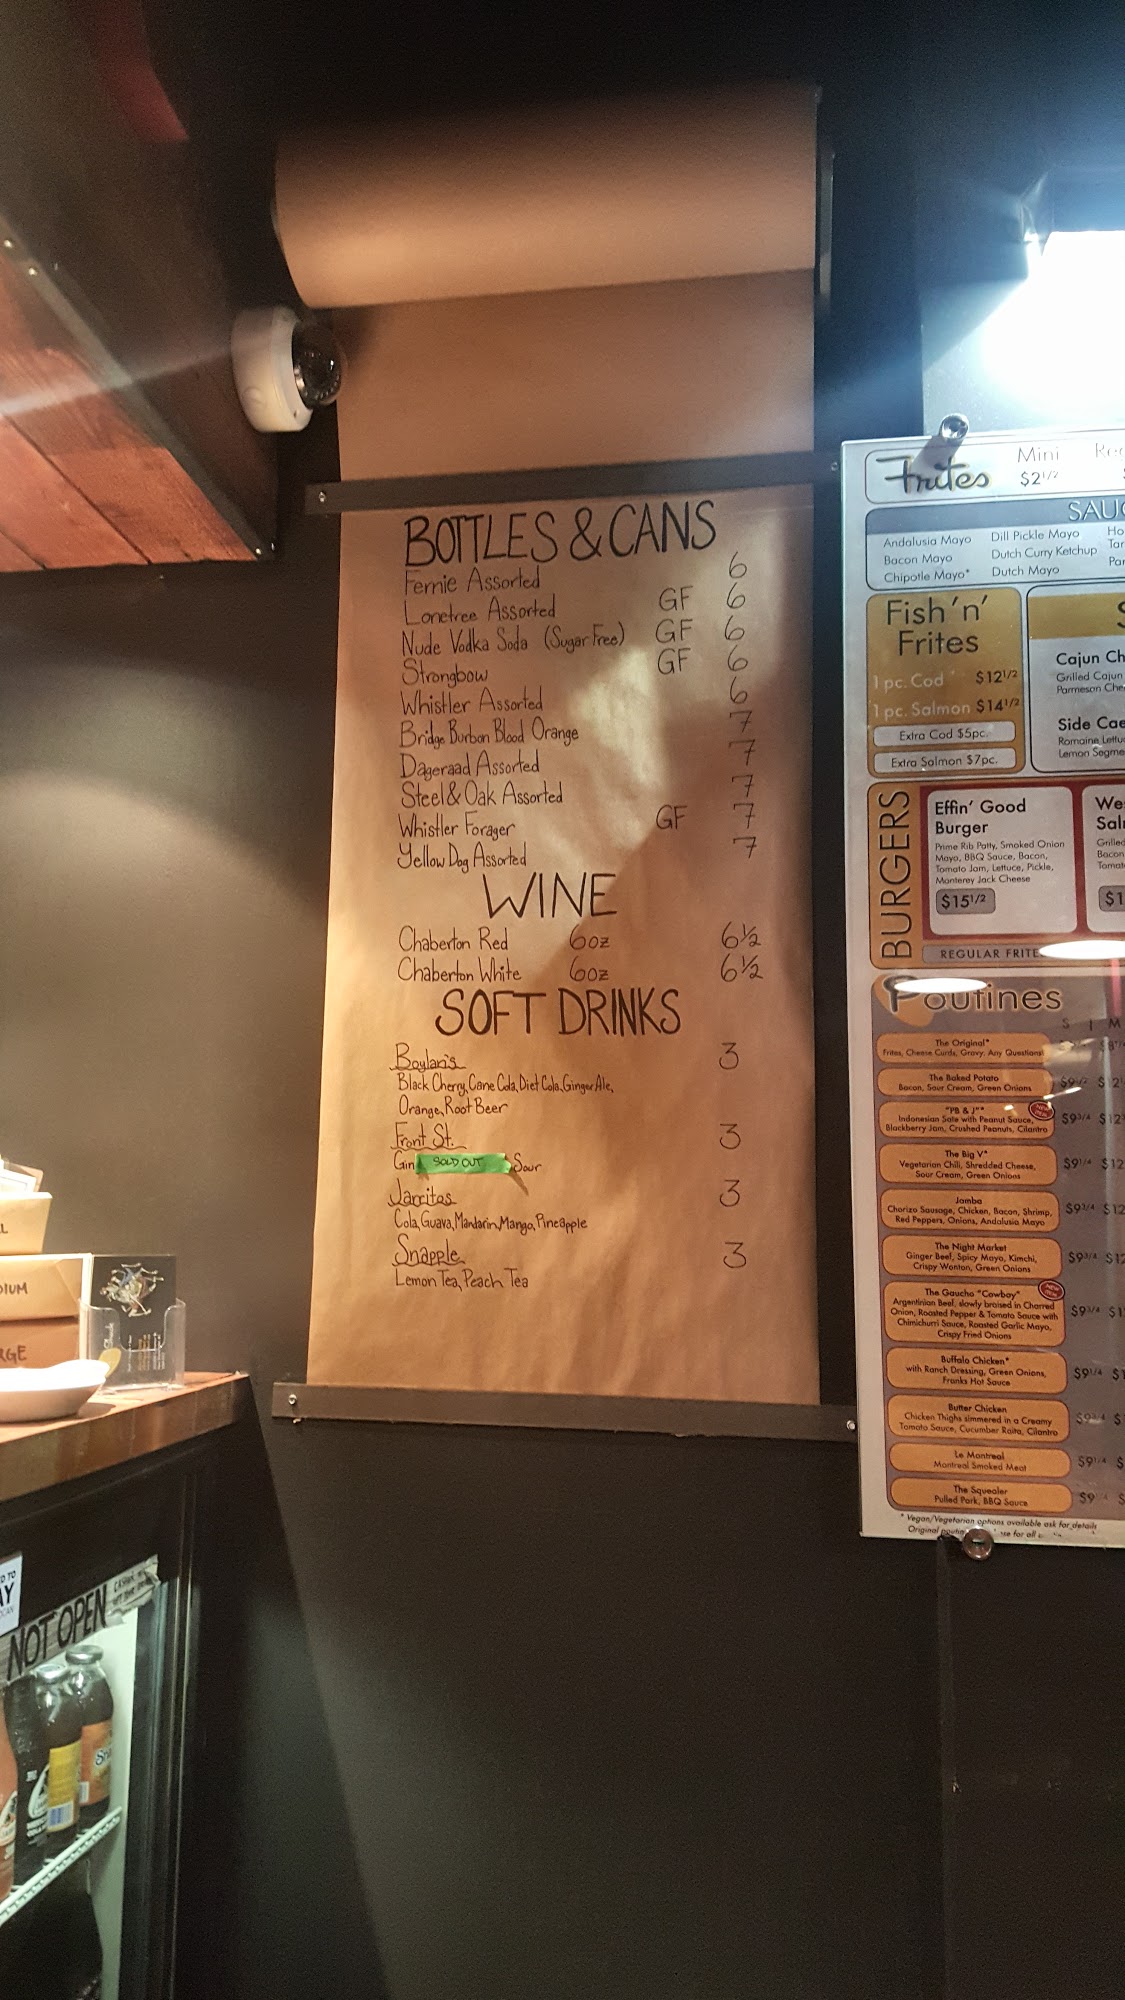 BOTTLES & CANS
Fernie Assorted 6
Lonetree Assorted GF 6
Nude Vodka Soda (Sugar Free) GF 6
Strongbow GF 6
Whistler Assorted 6
Bridge Burbon Blood Orange 7
Dageraad Assorted 7
Steel & Oak Assorted 7
Whistler Forager GF 7
Yellow Dog Assorted 7
WINE
Chaberton Red 6oz 6½
Chaberton White 6oz 6½
SOFT DRINKS
Boylan's 3
Black Cherry, Cane Cola, Diet Cola, Ginger Ale,
Orange, Root Beer
Front St. 3
Gin SOLD OUT Sour
Jarritos 3
Cola, Guava, Mandarin, Mango, Pineapple
Snapple 3
Lemon Tea, Peach Tea
Frites
Mini
$2 1/2
Andalusia Mayo Dill Pickle Mayo
Bacon Mayo Dutch Curry Ketchup
Chipotle Mayo* Dutch Mayo
Fish 'n'
Frites
1 pc. Cod $12 1/2
1 pc. Salmon $14 1/2
Extra Cod $5pc.
Extra Salmon $7pc.
Cajun
Grilled Cajun
Side
Lemon
BURGERS
Effin' Good
Burger
Prime Rib Patty, Smoked Onion
Mayo, BBQ Sauce, Bacon,
Tomato Jam, Lettuce, Pickle,
Monterey Jack Cheese
$15 1/2
REGULAR
Poutines
S M
The Original*
Frites, Cheese Curds, Gravy. Any Questions?
The Baked Potato
Bacon, Sour Cream, Green Onions
"PB & J"*
Indonesian Sate with Peanut Sauce,
Blackberry Jam, Crushed Peanuts, Cilantro
$9 3/4
The Big V*
Vegetarian Chili, Shredded Cheese,
Sour Cream, Green Onions
$9 1/4
Jamba
Chorizo Sausage, Chicken, Bacon, Shrimp,
Red Peppers, Onions, Andalusia Mayo
$9 3/4
The Night Market
Ginger Beef, Spicy Mayo, Kimchi,
Crispy Wonton, Green Onions
$9 3/4
The Gaucho "Cowboy"
Argentinian Beef, slowly braised in Charred
Onion, Roasted Pepper & Tomato Sauce with
Chimichurri Sauce, Roasted Garlic Mayo,
Crispy Fried Onions
$9 3/4
Buffalo Chicken*
with Ranch Dressing, Green Onions,
Franks Hot Sauce
$9 1/4
Butter Chicken
Chicken Thighs simmered in a Creamy
Tomato Sauce, Cucumber Raita, Cilantro
Le Montreal
Montreal Smoked Meat
$9 1/4
The Squealer
Pulled Pork, BBQ Sauce
* Vegan/Vegetarian options available ask for details
NOT OPEN